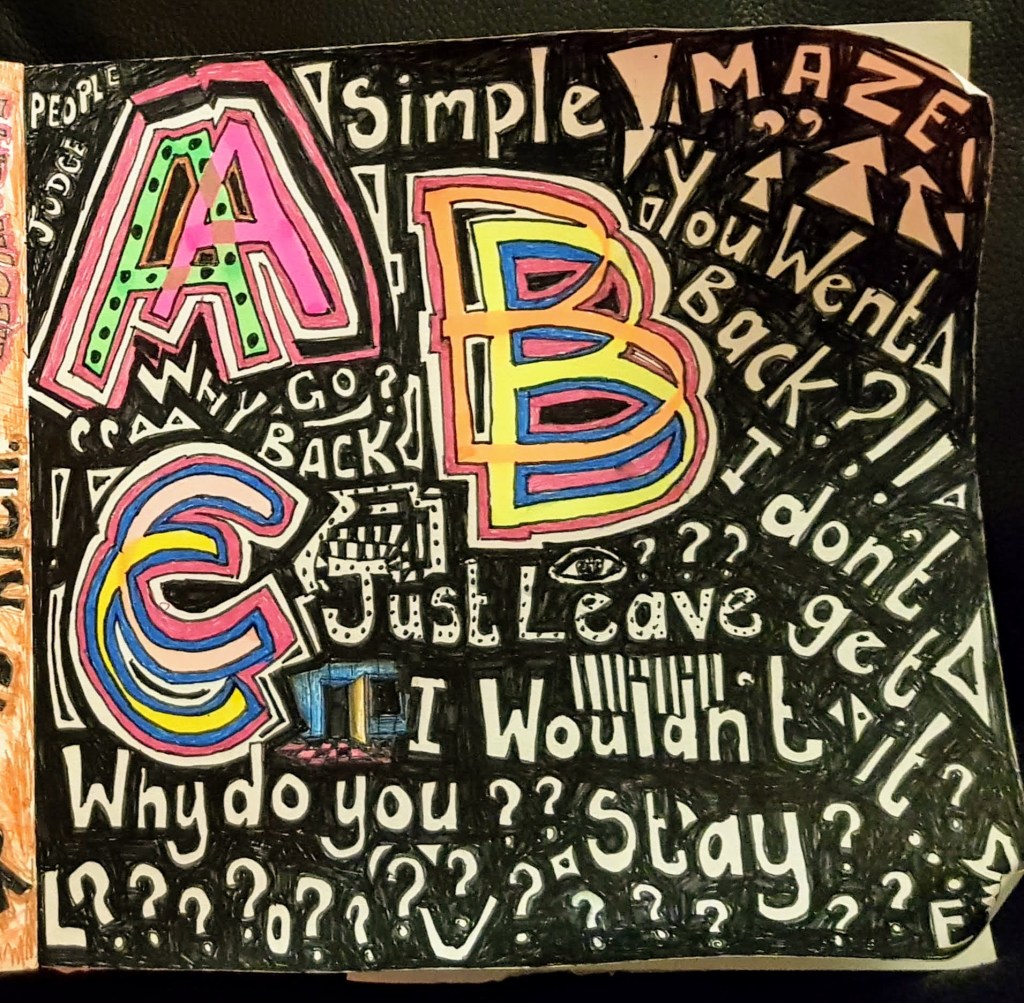 PEOPLE
JUDGE
A Simple MAZE
B
C
WHY GO?
BACK
You Went
Back?!!
I don't
get it?
Just Leave ???
I Wouldn't
Why do you ?? Stay?
L???O??V????????E